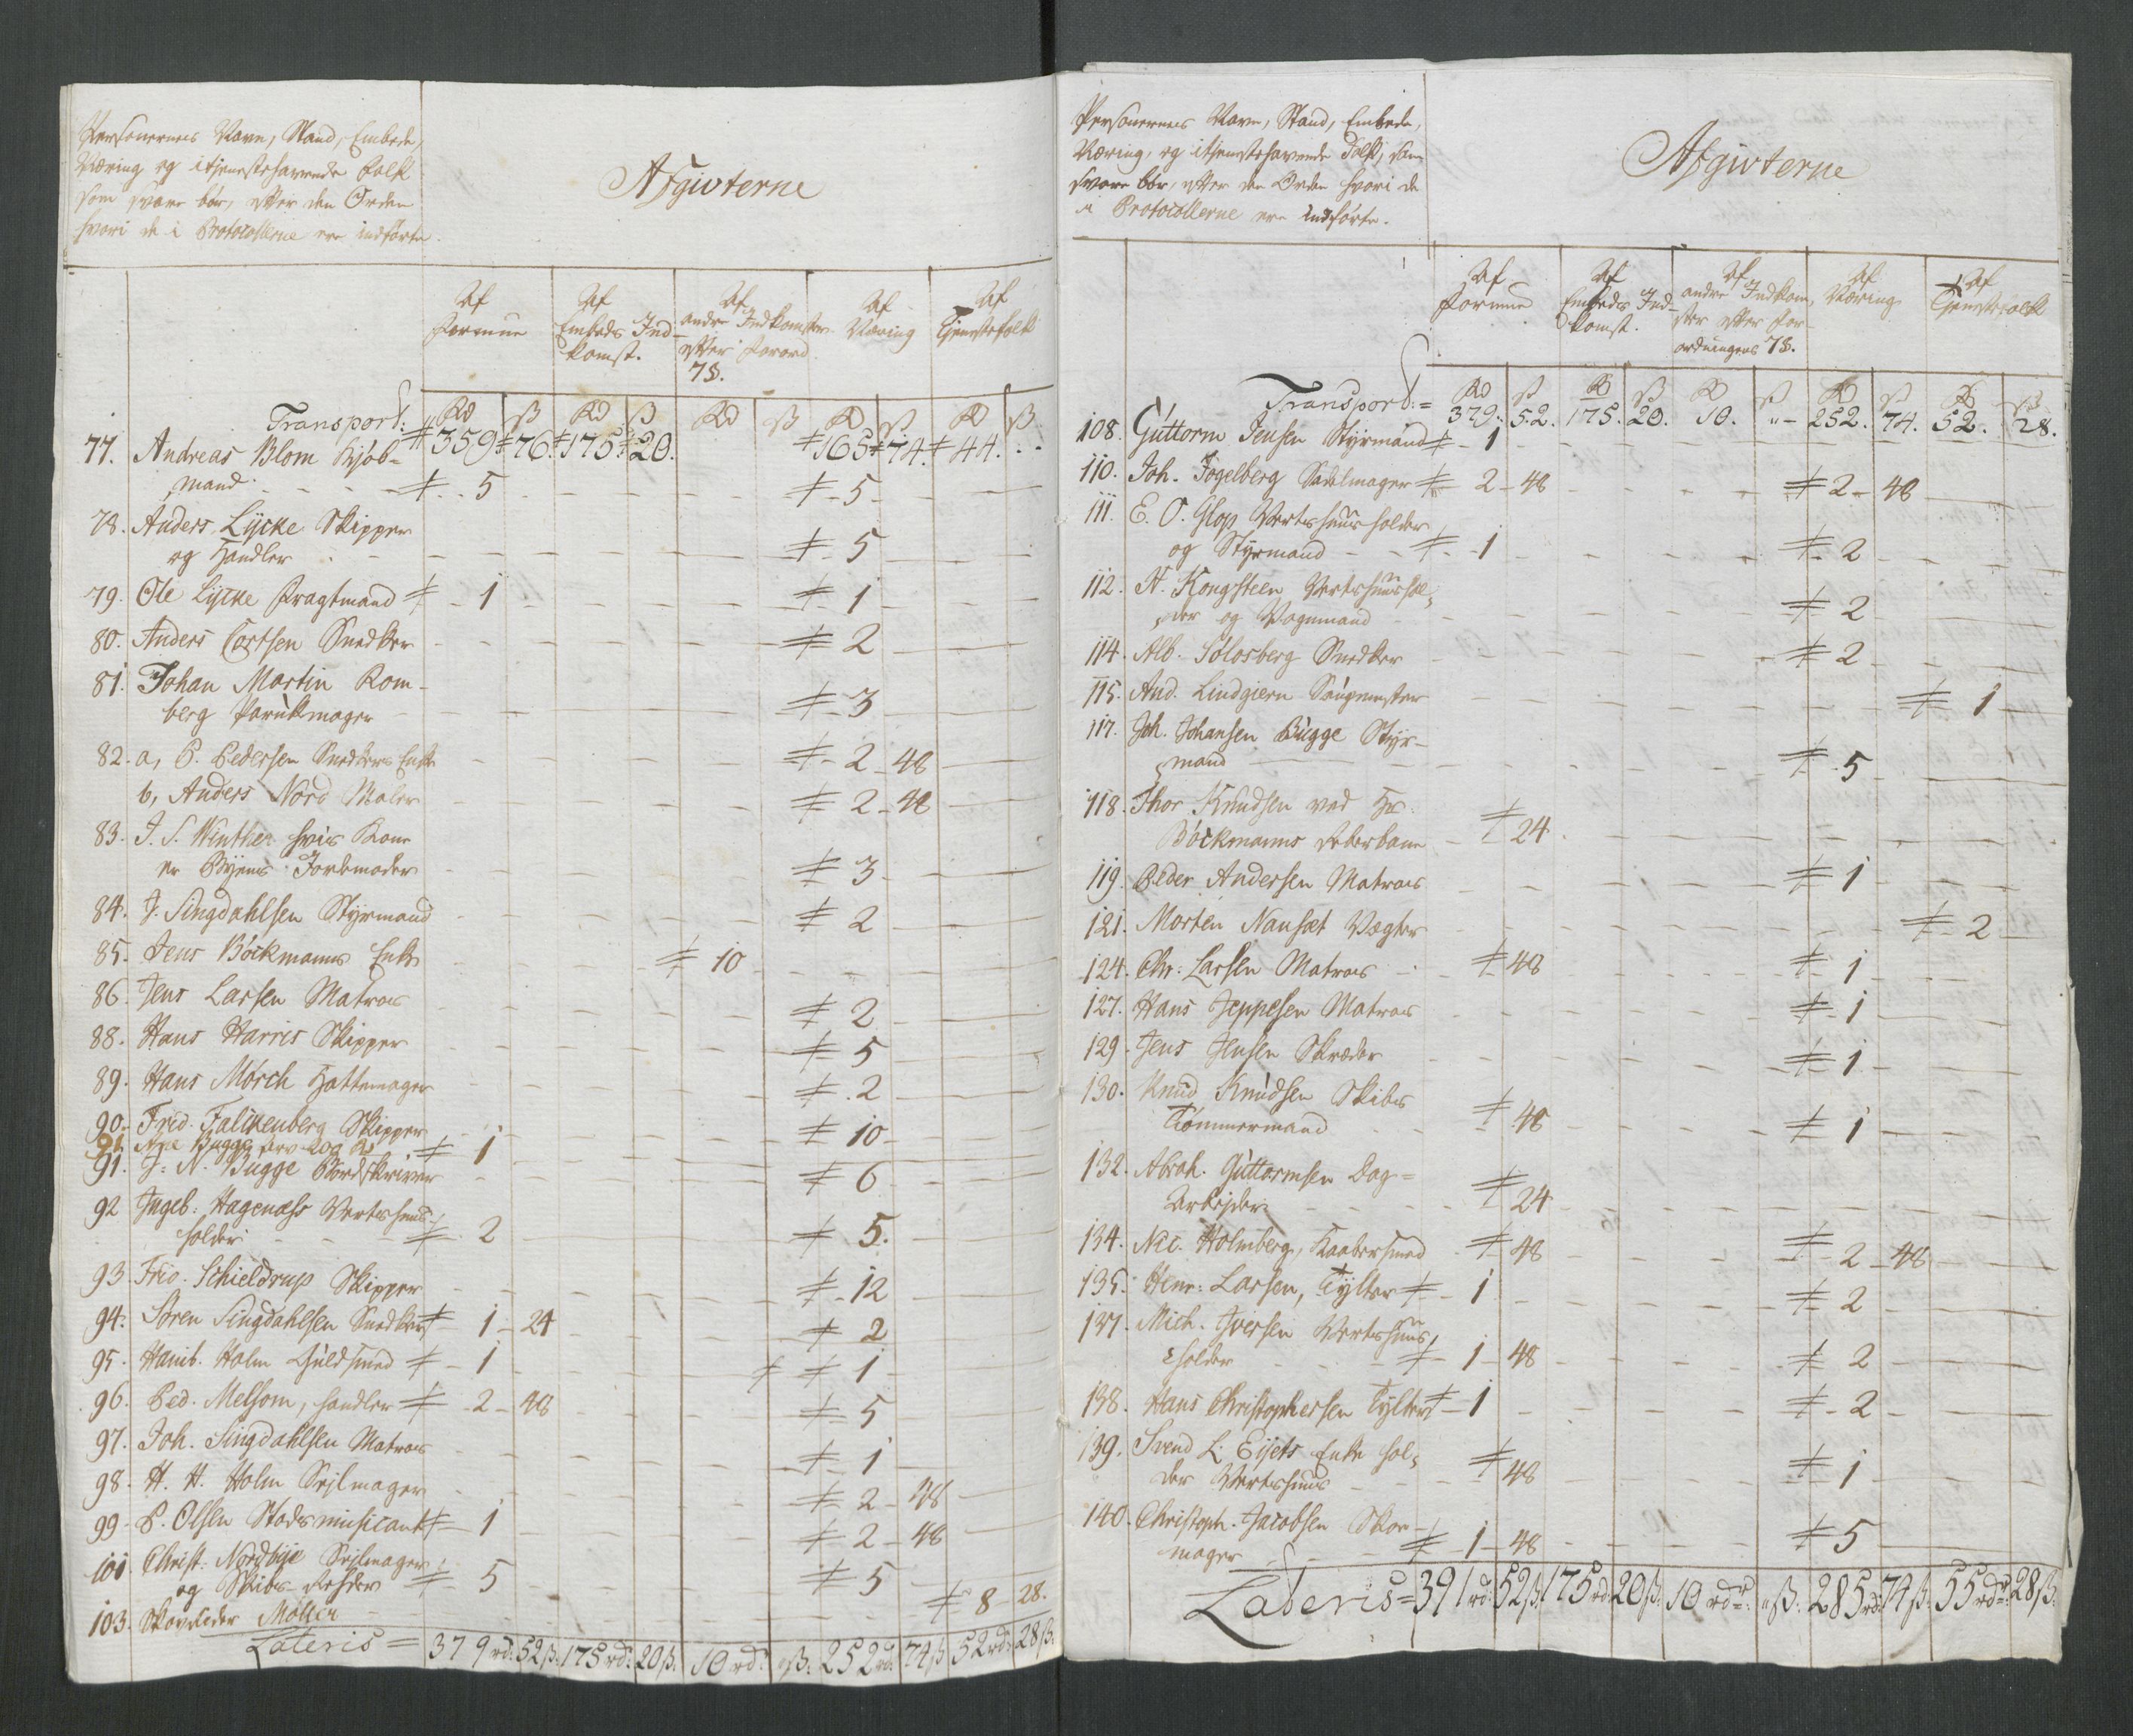 Personernes Navn, Stand, Embede,
Næring og itjenestehavende Folk
som svare bør, efter den Orden
hvori de i Protocollerne ere indførte.
Afgivterne
Af Formue
Af Embeds Indkomst.
Af andre Indkomster efter Forord. 7 §.
Af Næring
Af Tjenestefolk
Rd ß Rd ß Rd ß Rd ß Rd ß
Transport: 359 76. 175 20. 165 74. 44. - -
77. Andreas Blom Kjøb-
mand - - - 5 - - - - - 5 - - -
78. Anders Lycke Skipper
og Handler - - - - - - 5 - - -
79. Ole Lycke Fragtmand - 1 - - - - - 1 - - -
80. Anders Cortsen Snedker - - - - - 2 - - -
81. Johan Martin Rom-
berg Parúkmager - - - - - 3 - - -
82. a, P. Pedersen Snedkers Enke - - - - 2 - 48 - -
b, Anders Nord Maler - - - - 2 - 48 - -
83. J. S. Winther hvis Kone
er Byens Jordemoder - - - - 3 - - -
84. J. Singdahlsen Styrmand - - - - 2 - - -
85. Jens Böckmanns Enke - - - - 10 - - - - -
86. Jens Larsen Matros - - - - 2 - - -
88. Hans Harris Skipper - - - - 5 - - -
89. Hans Mörch Hattemager - - - - 2 - - -
90. Frid. Falckenberg Skipper - - - - 10 - - -
91. Bugge Arv 200 Rd 1
91. J. N. Bugge Bordskriver - - - - 6 - - -
92 Ingeb. Hagenæss Vertshuus-
holder - - 2 - - - - 5. - - -
93. Frid. Schieldrup Skipper - - - - 12 - - -
94. Sören Singdahlsen Snedker - 1 - 24 - - - - 2 - - -
95. Hanib. Holm Guldsmed - 1 - - - - 1 - - -
96. Ped. Melsom, handler - 2 - 48 - - - - 5 - - -
97. Joh. Singdahlsen Matros - - - - 1 - - -
98. H. H. Holm Sejlmager - - - - 2 - 48 - -
99. P. Olsen Stadsmusicant - 1 - - - - 2 - 48 - -
101 Christ. Nordbye Sejlmager
og Skibs-Rehder - 5 - - - - 5 - - -
103. Skovfider Möller - - - - - - 8 - 28.
Lateris = 379 rd: 52 ß: 175 rd: 20 ß. 10 rd: „ ß: 252 rd: 74 ß 52 rd: 28 ß.
Personernes Navn, Stand, Embede,
Næring, og itjenestehavende Folk, som
svare bör, efter den Orden hvori de
i Protocollerne ere indförte.
Afgivterne
Af Formue
Af Embeds Indkomst.
Af andre Indkomster efter Forordningens 7 §.
Af Næring
Af Tjenestefolk
Rd ß Rd ß Rd ß Rd ß Rd ß
Transport: = 379. 52. 175. 20. 10. „- 252. 74. 52. 28.
108. Gúttorm Jensen Styrmand - 1 - - - - - - -
110. Joh. Fogelberg Sadelmager - 2 - 48 - - - - 2 - 48 - -
111. E. O. Glop Vertshuusholder
og Styrmand - - 1 - - - - 2 - - -
112. N. Kongsteen Vertshuushol-
der og Vognmand - - - - 2 - - -
114. Alb. Solosberg Snedker - - - - 2 - - -
115. And. Lindgiern Saugmester - - - - - - 1 -
117. Joh. Johansen Bugge Styr-
mand - - - - 5 - - -
118. Thor Knudsen ved Hr.
Böckmanns Reberbane - 24. - - - - - - -
119. Peder Andersen Matros - - - - 1 - - -
121. Morten Nanset Vægter - - - - - - 2 -
124. Chr. Larsen Matros - - 48 - - - - 1 - - -
127. Hans Jeppesen Matros - - - - 1 - - -
129. Jens Jensen Skræder - - - - 1 - - -
130. Knud Knudsen Skibs
Tömmermand - - 48 - - - - 1 - - -
132. Abrah. Gúttormsen Dag=
Arbejder - - 24 - - - - - - -
134. Nic. Holmberg, Kaabersmed - 48 - - - - 2 - 48 - -
135. Henr. Larsen, Tylter - 1 - - - - 2 - - -
137. Mich. Iversen Vertshuus-
holder - - 1 - 48 - - - - 2 - - -
138. Hans Christophersen Tylter - 1 - - - - 2 - - -
139. Svend L. Eyets Enke hol-
der Vertshuus - - 48 - - - - 1 - - -
140. Christoph. Jacobsen Skoe-
mager - - 1 - 48 - - - - 5 - - -
Lateris = 391 rd: 52 ß. 175 rd: 20 ß. 10 rdr. „ ß. 285 rd: 74 ß. 55 rdr. 28 ß.